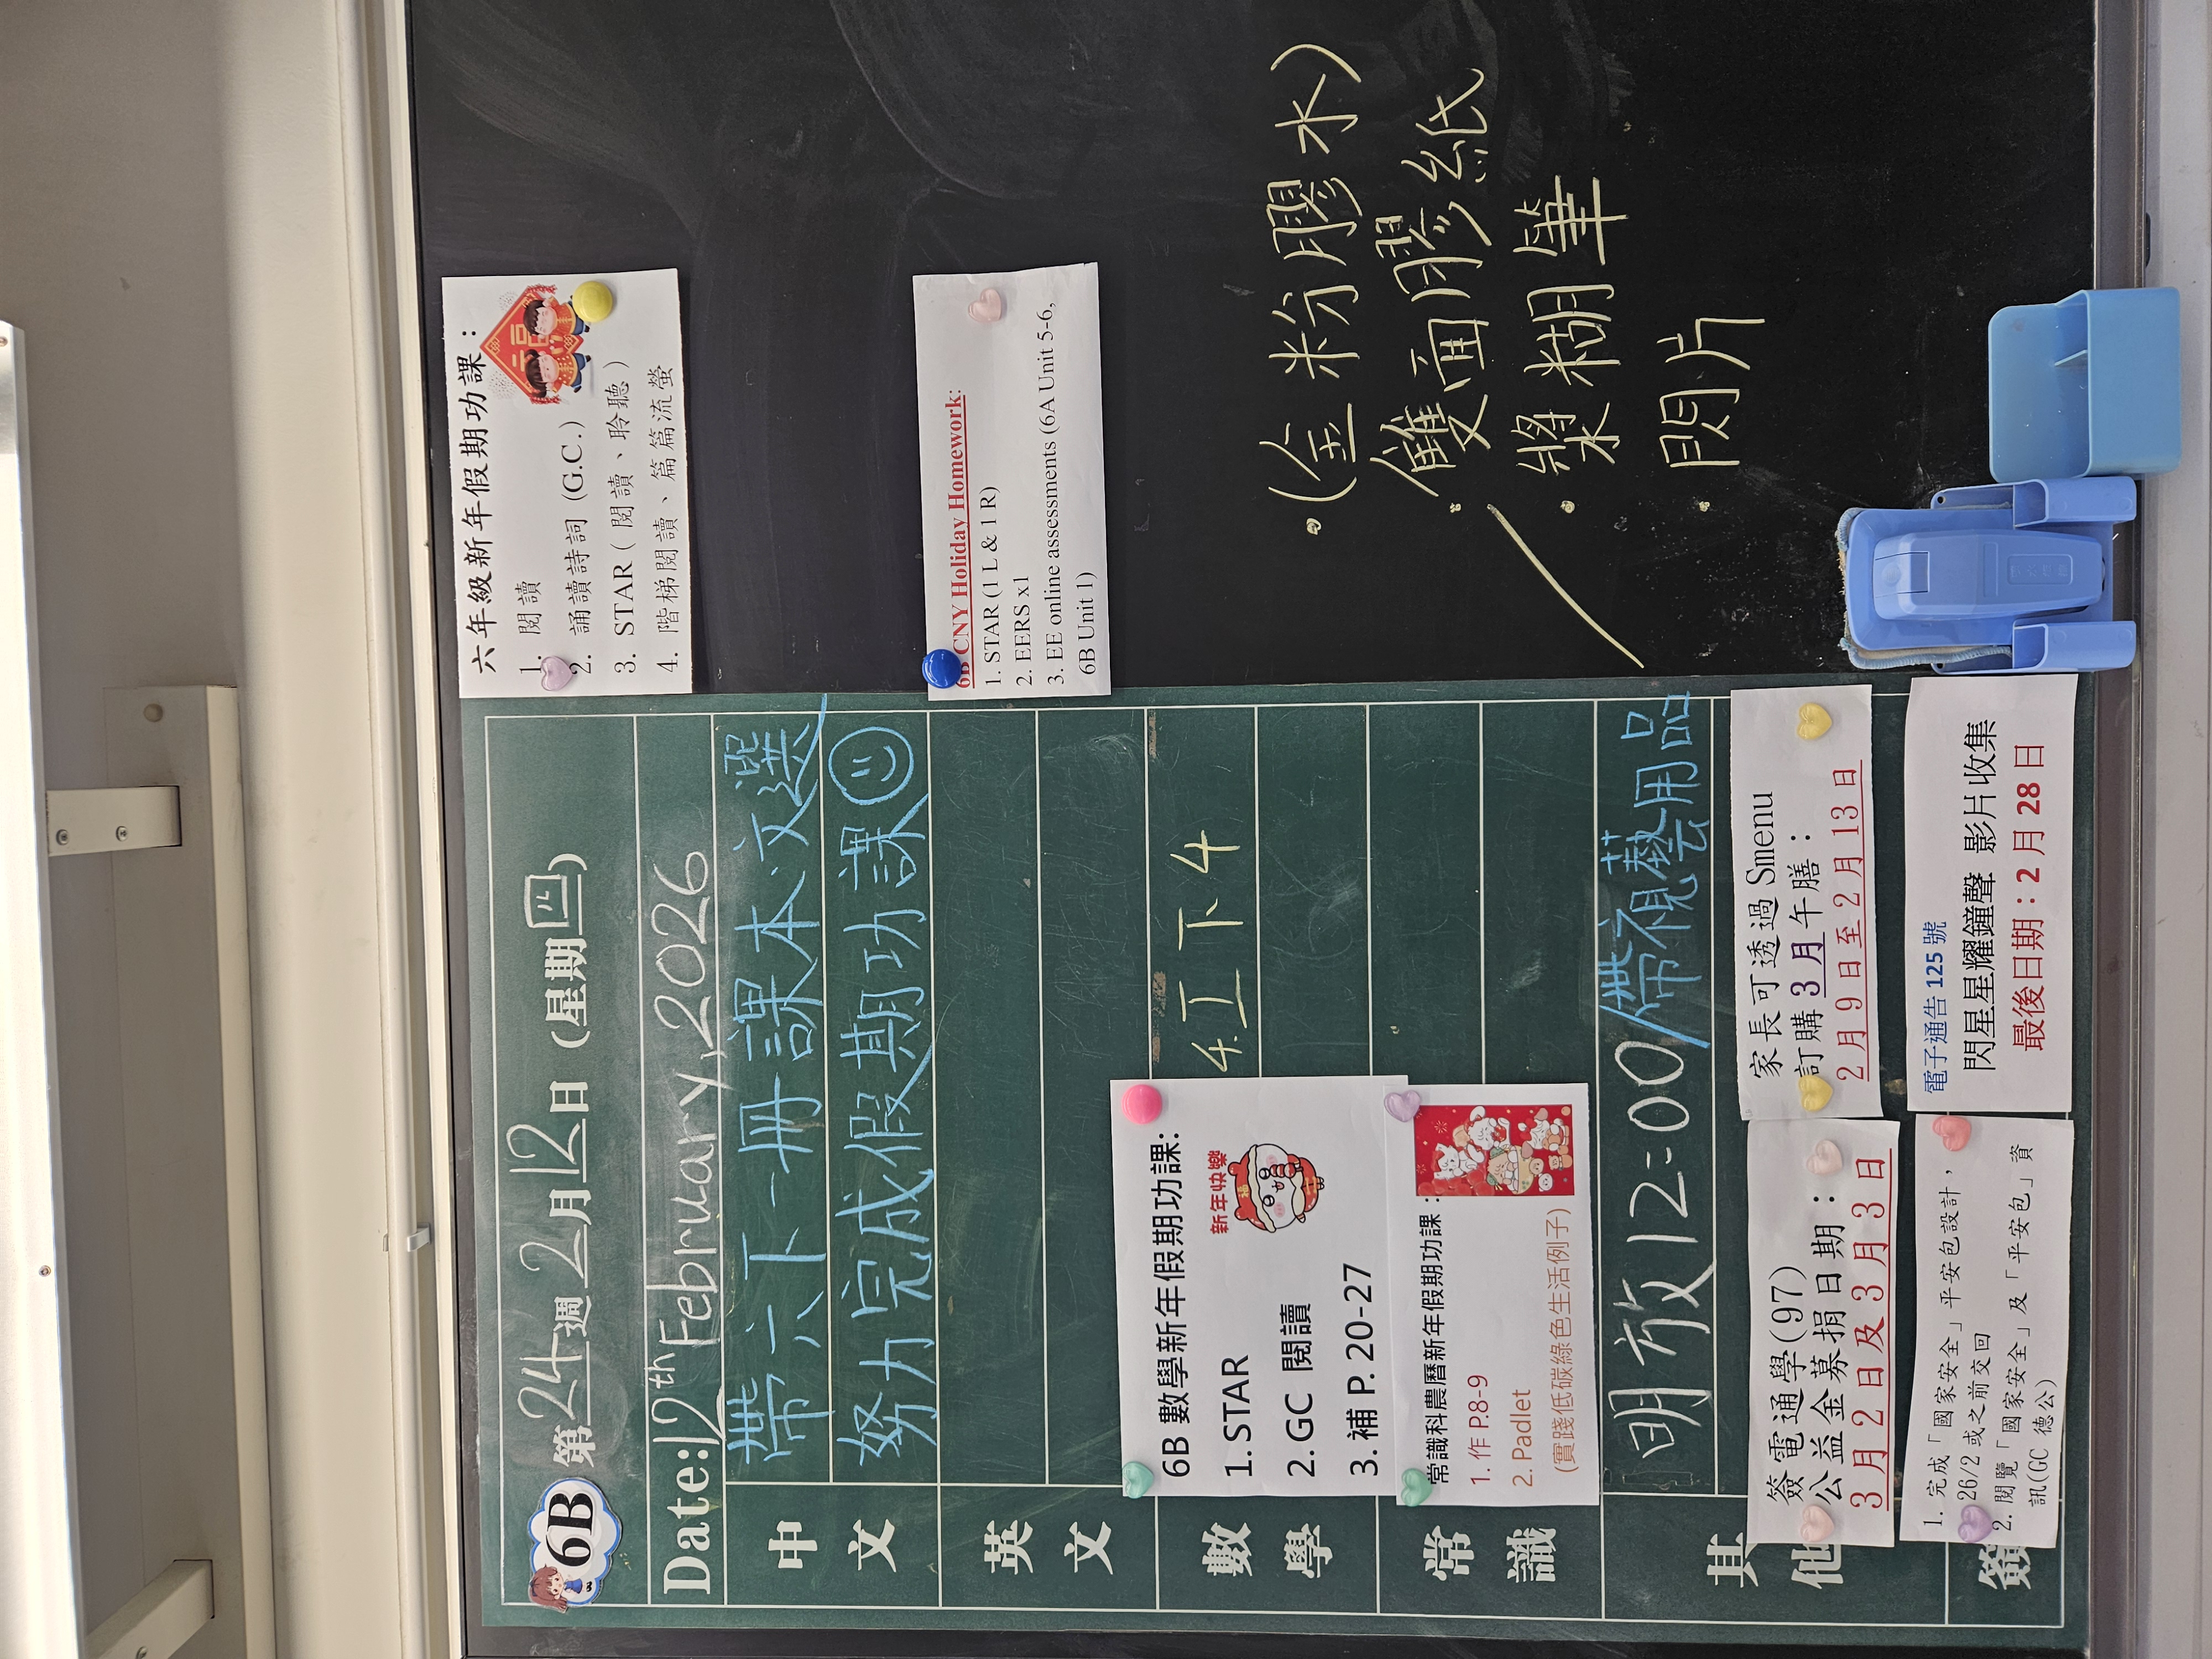 6B
第24週 2月12日 (星期四)
Date: 12th February, 2026
中文
帶六下一冊課本、文選
努力完成假期功課
英文
數學
6B 數學新年假期功課:
1. STAR
2. GC 閱讀
3. 補 P. 20-27
新年快樂
4. 工下4
常識
常識科農曆新年假期功課:
1. 作 P.8-9
2. Padlet
(實踐低碳綠色生活例子)
其他
明放12:00/帶視藝用品
簽電通學(97)
公益金募捐日期:
3月2日及3月3日
家長可透過 Smenu
訂購 3月午膳:
2月9日至2月13日
簽
1. 完成「國家安全」平安包設計,
26/2 或之前交回
2. 閱覽「國家安全」及「平安包」資
訊(GC 德公)
電子通告 125 號
閃星星耀鐘聲 影片收集
最後日期:2月28日
六年級新年假期功課:
1. 閱讀
2. 誦讀詩詞 (G.C.)
3. STAR (閱讀、聆聽)
4. 階梯閱讀、篇篇流螢
6B CNY Holiday Homework:
1. STAR (1 L & 1 R)
2. EERS x1
3. EE online assessments (6A Unit 5-6,
6B Unit 1)
• (金粉膠水)
• 雙面膠紙
• 漿糊筆
• 閃片